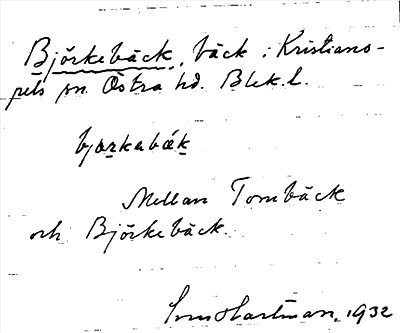 Björkebäck, bäck i Kristiano-
pels sn. Östra hd. Blek.l.
bjorkabäk
Mellan Tornbäck
och Björkebäck.
Sven Hartman. 1932